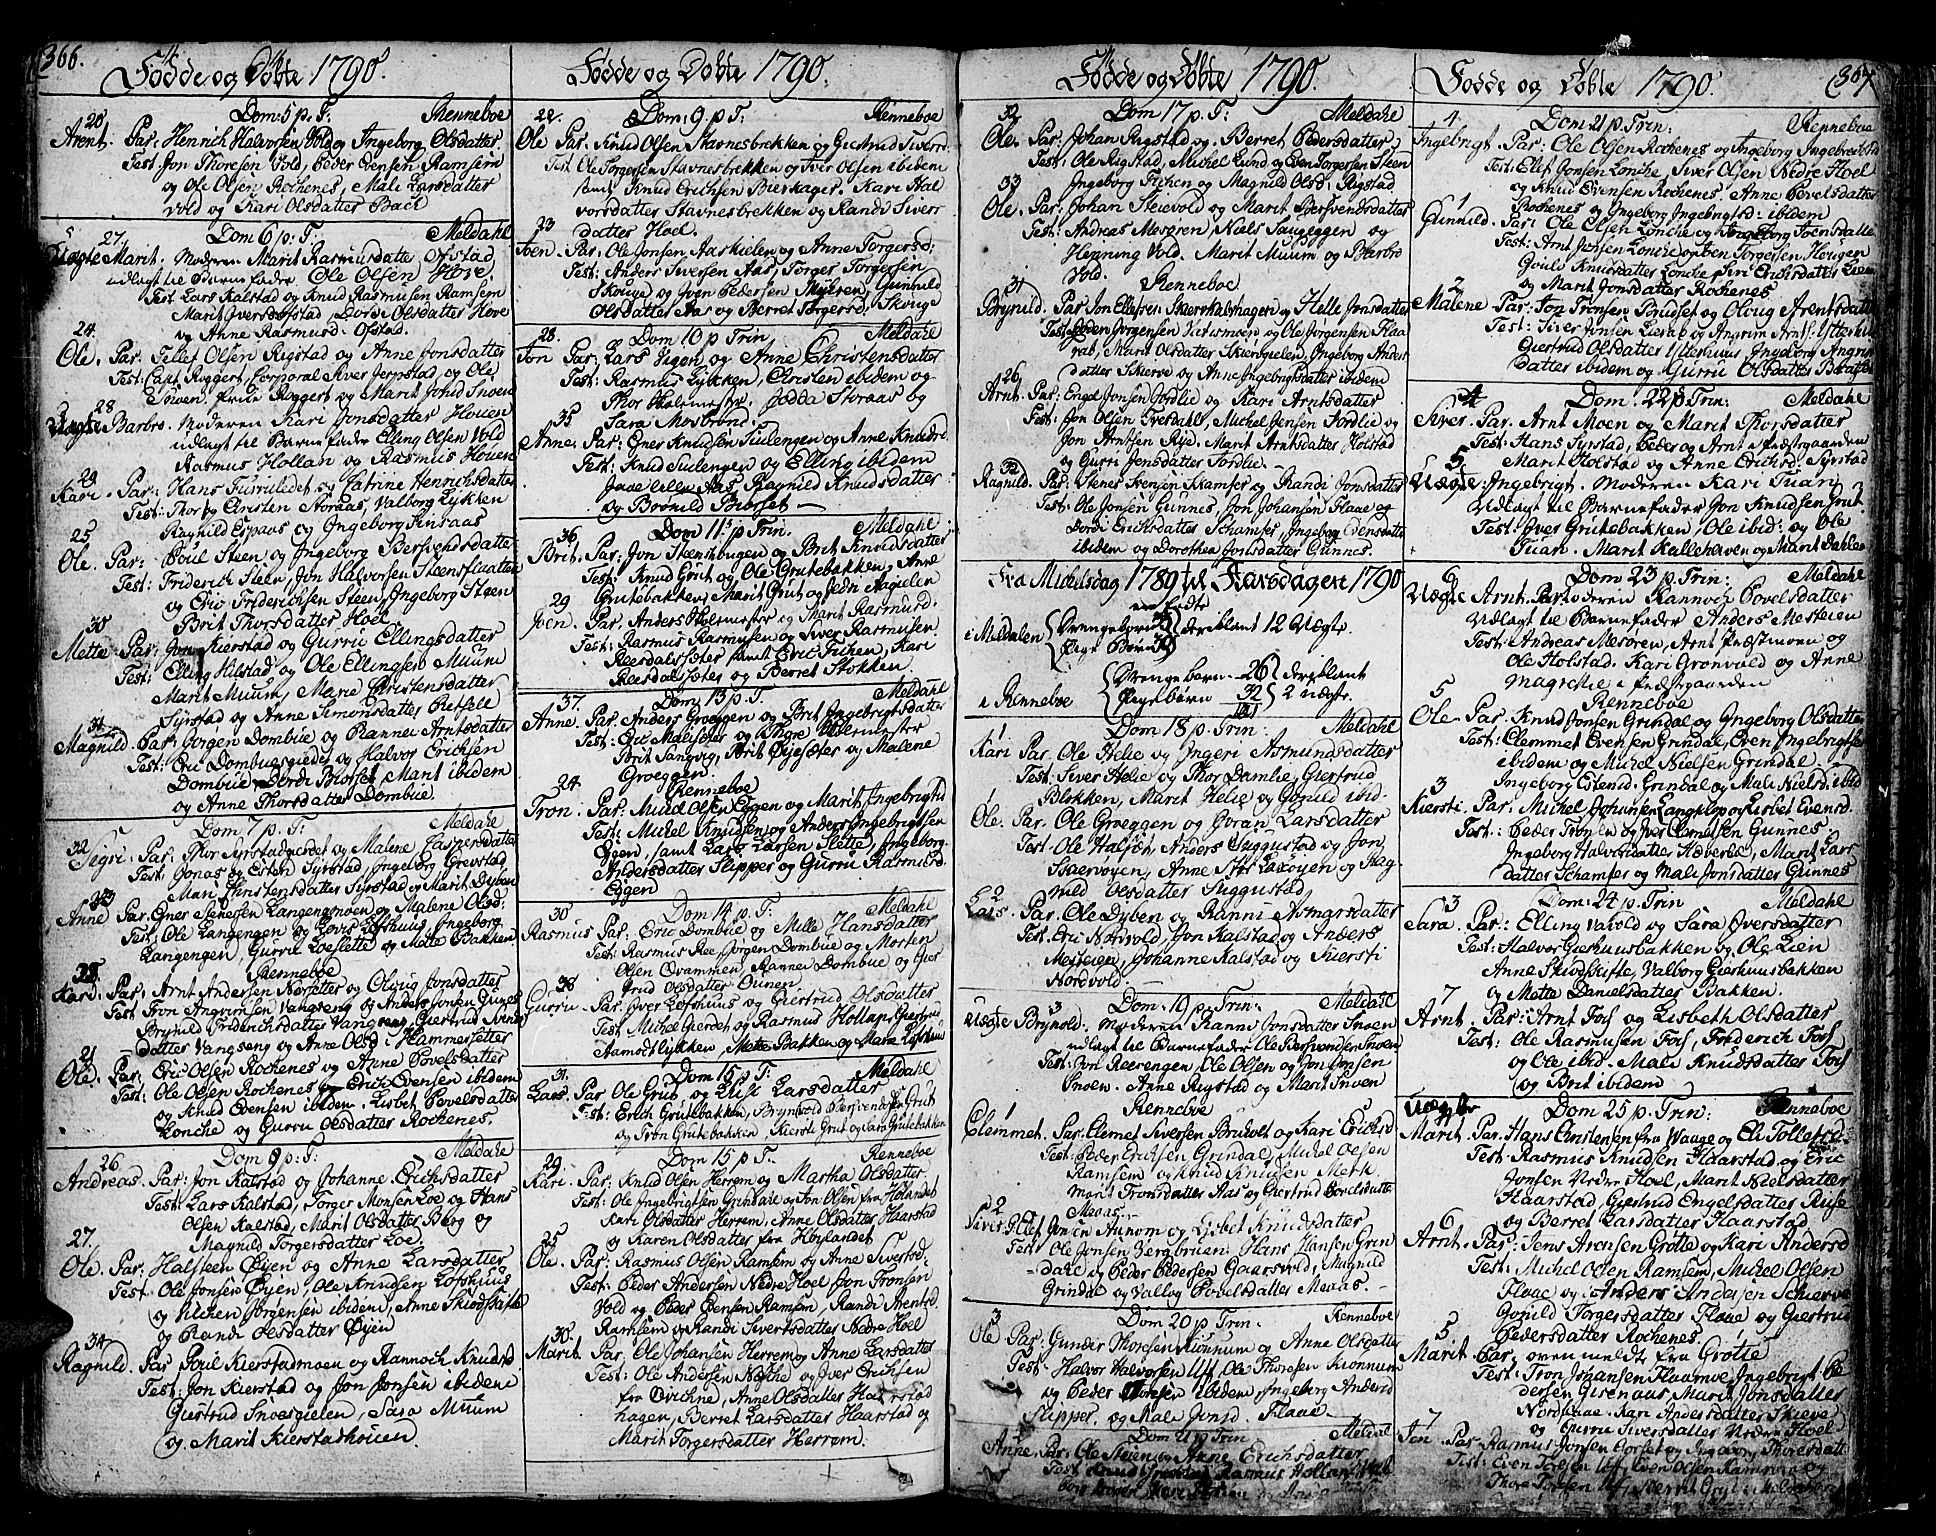 366.
Fødde og Døbte 1790.
20 Dom: 5 p. T. Renneboe
Arent. Par: Henrich Halvorsen Vold og Ingeborg Olsdatter
Test: Jon Thoresen Vold, Peder Evensen Ramsem
og Ole Olsen Rochenes, Mali Larsdatter
Vold og Kari Olsdatter Bach
27. Dom 6 p: T. Meldahl
Uægte Marit. Moderen Marit Rasmusdatter Ofstad
udlagt til Barnefader Ole Olsen Hove.
Test: Lars Kalstad og Knud Rasmusen Ramsem
Marit Iversd: Ofstad, Dordi Olsdatter Hove
og Anne Rasmusd. Ofstad.
24.
Ole. Par. Tellef Olsen Rigstad og Anne Jonsdatter
Test: Capt. Roggert, Corporal Siver Jerpstad og Ole
Snoen. Frue Roggert og Marit Johsd Snoen
28
Uægte Barbro. Moderen Kari Jonsdatter Houen
udlagt til Barnefader Elling Olsen Vold
Rasmus Hollan og Rasmus Houen
29
Kari. Par: Hans og Catrine Henrichsdatter
Test: Thor og Christen Storaas, Valborg Lykken
Ragnild Espaas og Ingeborg
25
Ole. Par: Poul Steen og Ingeborg Bersvendsdatter
Test: Friderich Steen, Jon Halvorsen Steensflaatten
og Eric Friderichsen Steen, Ingeborg Stgen
Brit Thorsdatter Hoel
30
Mette. Par: Jon Kierstad og Gurru Ellingsdatter
Test: Elling Kilstad og Ole Ellingsen Muum
Marit Muum, Marie Christensdatter
Syrstad og Anne Simonsdatter Ritsell
31
Magnild. Par: Jørgen Dombue og Rannei Arntsdatter
Test: Eric Dombuesgiedet og Halvor Erichsen
Dombue, Dordi Biørset, Marit ibidem
og Anne Thorsdatter Dombue
Dom 7 p: T. Meldahl
32
Sigri. Par: Thor Syrstadgierdet og Malene Caspersdatter
Test: Jonas og Esten Syrstad, Ingeborg Grevstad
Mari Christensdatter Syrstad og Marit Dyben
33
Anne Par. Ener Stenersen Langengmoen og Malene Olsd.
Test: Ole Langengen og Lovis Lofshuus, Ingeborg
Langengen, Gurru Loesette og Mette Bakken
Renneboe
Kari. Par: Arnt Andersen Næsetter og Oloug Jonsdatter
Test: Tron Angrimsen Vangseng og Anders Jonsen Gunnes
Brynild Friderichsdatter Vangseng, Giertrud
datter Vangseng og Anne Olsd: Hammersetter
21
Ole. Par: Eric Olsen Rochenes og Anne Povelsdatter
Test: Ole Olsen Rochenes og Erich Evensen ibidem
og Knud Evensen ibidem. Lisbet Povelsdatter
Lonche og Gurru Olsdatter Rochenes.
26 Dom 8 p: T: Meldahl
Andreas. Par: Jon Kalstad og Johanne Erichsdatter
Test: Lars Kalstad, Torger Monsen Loe og Hans
Olsen Kalstad, Marit Olsdatter Berg og
Magnild Torgersdatter Loe.
27.
Ole. Par: Halsteen Øyen og Anne Larsdatter
Test: Ole Jonsen Øyen, Ole Knudsen Lofshuus
og Michen Jørgensen ibidem, Anne Skiodskifte
og Randi Olsdatter Øyen
34
Ragnild. Par Poul Kierstadmoen og Rannoch Knudsd
Test: Jon Kierstad og Jon Jonsen ibidem
Giertrud Snoesgielen, Sara Muum
og Marit Kierstadhouen.
Fødde og Døbte 1790.
22. Dom: 9. p T: Renneboe
Ole Par. Knud Olsen Stavnesbrekken og Giertrud Siversd.
Test: Ole Torgersen Stavnesbrekken og Iver Olsen ibidem
samt Knud Erichsen Bierkager. Kari Hal
vorsdatter Stavnesbrekken og Randi Sivers
datter Hoel.
23
Iven. Par: Ole Jonsen Aaskielen og Anne Torgersd:
Test: Anders Siversen Aas, Torger Torgersen
Skouge og Iven Pedersen Myhren, Gunnild
Olsdatter Aas og Berret Torgersd: Skouge
28. Dom 10 p Trin Meldahl
Jon Par: Lars Eigen og Anne Christensdatter
Test: Rasmus Lykken, Christen ibidem og
Thor Holemestre. Jødda Storaas og
Sara Mosbrønd.
35
Anne: Par: Ener Knudsen Suulengen og Anne Knudsd.
Test: Knud Suulengen og Elling ibidem
Aas Ragnild Knudsdatter
og Bødnild Biorset
36. Dom 11 p Trin. Meldahl
Brit. Par. Jon Steensbugen og Brit Knudsdatter
Test: Knud Grut og Ole Grutebakken, Anne
Grutebakken, Marit Grut og Jødn Aagielen
29
Joen. Par, Anders Holemestre og Marit Rasmusd.
Test: Rasmus Rasmusen og Siver Rasmusen
Reesdalssæter samt Eric Fichen, Kari
Reesdalssæter og Berret Stokken
37. Dom 13 p. T. Meldahl
Anne. Par. Anders Groeggen og Brit Ingebrigtsdatter
Test: Eric Malisæter og Thore Holemestre
Brit Sangvig, Brit Øyesæter og Malene
Groeggen.
24 Renneboe
Tron. Par: Mund Olsen Eggen og Marit Ingebrigtsd
Test: Michel Knudsen og Anders Ingebrigtsen
Eggen, samt Lars Larsen Slette, Ingeborg
Andersdatter Slipper og Gurru Rasmusd.
Eggen
30 Dom 14 p. T. Meldahl
Rasmus Par: Eric Dombue og Mille Hansdatter
Test: Rasmus Ree, Jørgen Dombue og Morten
Olsen Qvammen, Rannei Dombue og Gier
trud Olsdatter Dunen
38
Gurru. Par: Iver Lofshuus og Giertrud Olsdatter
Test: Michel Gierdet og Rasmus Hollan, Giertrud
Aamodtlykken, Mette Bakken og Mara Lofshuus
31. Dom 15 p T. Meldahl
Lars. Par Ole Grut og Elise Larsdatter
Test: Erich Grutebakken, Brynild Bersvendsen Grut
og Tron Grutebakken, Kiersti Grut og Sara Grutebakken
29. Dom 15 p T. Renneboe
Kari. Par: Knud Olsen Herrem og Martha Olsdatter
Test: Ole Ingebrigtsen Grindal og Jon Olsen fra Høilandet
Kari Olsdatter Herrem, Anne Olsdatter Haarstad
og Karen Olsdatter fra Høylandet
25
Ole. Par: Rasmus Olsen Ramsem og Anne Siversd.
Test: Peder Andersen Nedre Hoel, Jon Tronsen
Vold og Peder Evensen Ramsem, Randi Arentsd
Ramsem og Randi Sivertsdatter Nedre Hoel
30.
Marit. Par: Ole Johansen Herrem og Anne Larsdatter
Test: Ole Andersen Næsthe og Iver Erichsen
fra Qvichne, Anne Olsdatter Haarstad
hagen, Berret Larsdatter Haarstad og
Marit Torgersdatter Herrem.
Fødde og Døbte 1790.
32 Dom 17 p. T: Meldahl
Ole. Par. Johan Rigstad og Berret Pedersdatter
Test: Ole Rigstad, Michel Lund og Even Torgersen Steen
Ingeborg Fichen og Magnild Olsd. Rigstad
33
Ole. Par: Johan Steievold og Marit Bersvendsdatter
Test: Andreas Mesøren, Niels Saugeggen og
Henning Vold. Marit Muum og Barbro
Vold.
31 Renneboe
Brynild. Par Jon Ellefsen og Helle Jonsdatter
Test: Peden Jørgensen og Ole Jørgensen Flaa
Marit Olsdatter Skiervgielen, Ingeborg Anders
datter Skierve og Anne Ingebrigtsdatter ibidem
26
Arnt. Par: Engel Jonsen Jordlie og Kari Arntsdatter
Test: Jon Olsen Tresdahl, Michel Jensen Jordlie og
Jon Arntsen Rye. Marit Arntsdatter Holstad
og Gurri Jensdatter Jordlie
32
Ragnild. Par: Stenes Svensen Skamfer og Randi Jonsdatter
Test: Ole Jonsen Gunnes, Jon Johansen Flaae og
Dordi Erichsdatter Schamfer, Ingeborg Evensdatter
ibidem og Dorothea Jonsdatter Gunnes.
Fra Michelsdag 1789 til Aarsdagen 1790
ere fødte
i Meldalen Drengebørn Pigebørn deriblant 12 Uægte.
i Renneboe Drengebørn 26 Pigebørn 32 deriblant 2 Uægte.
1 Dom 18 p. Trin. Meldahl
Kari Par. Ole Helie og Ingeri Asmundsdatter
Test: Siver Helie og Thor Damlie, Giertrud
Blokken, Marit Helie og Gognild ibid:
1
Ole. Par. Ole Groeggen og Goran Larsdatter
Test: Ole Haltjær, Anders Suggustad og Jon
Skaerøyen, Anne Stor Laxøyen og Hag
nild Olsdatter Suggustad
2
Lars. Par. Ole Dyben og Ranni Asmarsdatter
Test. Eric Nordvold, Jon Kalstad og Anders
Mesteien, Johanne Kalstad og Kiersti
Nordvold.
3 Dom: 19 p. Trin: Meldahl
Uægte Brynild. Moderen Ranni Jonsdatter Snoen
udlagt til Barnefader Ole Bersvendsen Snoen
Test: Jon Reerengen Ole Olsen og Jon Jonsen
Snoen. Anne Rigstad og Marit Snoen
1 Renneboe
Clemmet. Par. Clemet Siversen Bruholt og Kari Ericksd
Test: Peder Ericksen Grindal, Michel Olsen
Ramsem og Knud Knudsen Merk
Marit Tronsdatter Aas og Giertrud Povelsdatter
Meaas.
2
Siver. Jonsen Aunom og Lisbet Knudsdatter
Test. Ole Jonsen Bergbruen, Hans Hansen Grin
dal og Peder Pedersen Gaarsvold, Magnild
Grindal og Valbog Povelsdatter Meaas.
3 Dom 20 p Trin. Renneboe
Ole Par: Gunder Thorsen Kionnum og Anne Olsdatter
Test: Halvor Halvorsen Uff, Ole Thoresen Kionnum
og Peder Thorsen ibidem, Ingeborg Andersd
Slipper. og Mali Jonsd. Flaae.
Dom 21 p Trin. Meldahl
Anne. Par. Ole Steien og Anne Erichsdatter
Test. Knud Rasmus Hollan
Fødde og Døbte 1790. 367
4. Dom 21 p. Trin: Renneboe
Ingebrigt. Par: Ole Olsen Rochenes og Ingeborg Ingebrigtsd
Test: Ellef Jonsen Lonche, Siver Olsen Nedre Hoel
og Knud Evensen Rochenes. Anne Povelsdatter
Rochenes og Ingeborg Ingebrigtsd: ibidem
1
Gunnild. Par: Ole Olsen Lonche og Ingeborg Svensdatter
Test: Arnt Jonsen Lonche og Iven Torgersen Hougen
Goul Knudsdatter Lonche, Siri Erichsdatter
og Marit Jonsdatter Rochenes
2
Malene Par: Jon Tronsen Budset og Oloug Arentsdatter
Test: Siver Jonsen Lierab og Angrim Arntsen Ytterhuus
Giertrud Olsdatter Ytterhuus, Ingeborg Angrims
datter ibidem og Gurru Olsdatter
4 Dom: 22 p Trin: Meldahl
Siver Par. Arnt Moen og Marit Thorsdatter
Test: Hans Syrstad, Peder og Arnt i Præstgaarden
Marit Holstad og Anne Erichsd. Syrstad
5
Uægte Ingebrigt. Moderen Kari Tuan
Udlagt til Barnefader Jon Knudsen Grut
Test: Iver Grutebakken, Ole ibid: og Ole
Tuan. Marit Kallehaven og Marit Dahlen
6 Dom 23 p. Trin: Meldahl
Uægte Arnt. Moderen Rannoch Povelsdatter
Udlagt til Barnefader Anders Mesteien
Test: Andreas Mesøren, Arnt Præstmoen og
Ole Holstad. Kari Grønvold og Anne
Magrethe i Præstgaarden
5 Renneboe
Ole. Par. Knud Jonsen Grindal og Ingeborg Olsdatter
Test: Clemmet Evensen Grindal, Even Ingebrigtsen
ibidem og Michel Nielsen Grindal.
Ingeborg Estensd. Grindal og Mali Nielsd. ibid
3
Kiersti Par: Michel Johansen Langklop og Lisbet Evensd.
Test: Peder Tronsen og Iver Clemetsen Gunnes
Ingeborg Halvorsdatter Hæverlie, Marit Lars
datter Schamfer og Mali Jonsdatter Gunnes
3 Dom: 24 p. Trin Meldahl
Sara Par: Elling Vavold og Sara Iversdatter
Test: Halvor Gierhuusbakken og Ole Lien
Anne Skiodskifte, Valborg Gierhuusbakken
og Mette Danielsdatter Bakken.
7
Arnt. Par: Arnt Fos og Lisbeth Olsdatter
Test: Ole Rasmusen Fos, Friderich Fos
og Ole ibid. Mali Knudsdatter Fos
og Brit ibidem
Uægte Dom 25 p. Trin: Renneboe
Marit. Par. Hans Christensen fra Vauge og Eli Tollefsd.
Test: Rasmus Knudsen Haarstad og Eric
Jonsen Nedre Hoel, Marit Nielsdatter
Haarstad, Giertrud Engelsdatter Rise
og Berret Larsdatter Haarstad
6
Arnt. Par: Jens Arensen Grøtte og Kari Andersd
Test: Michel Olsen Ramsem, Michel Olsen
Flaae og Anders Andersen Schierve
Gognild Torgersdatter Flaae og Giertrud
Pedersdatter Rochenes
5.
Marit. Par. ovenmeldt fra Grøtte
Test: Tron Johansen Flaamoe, Ingebrigt Pe
dersen Gisenaas, Marit Jonsdatter
Nordskaae. Kari Andersdatter Skierve
og Gurru Siversdatter Nedre Hoel
7
Jon Par. Rasmus Jonsen og Ingeborg Thoresdatter
Test: Even Toresen Uff, Even Olsen Ramsem og
Thore Toresen Uff, Berrit Gryt